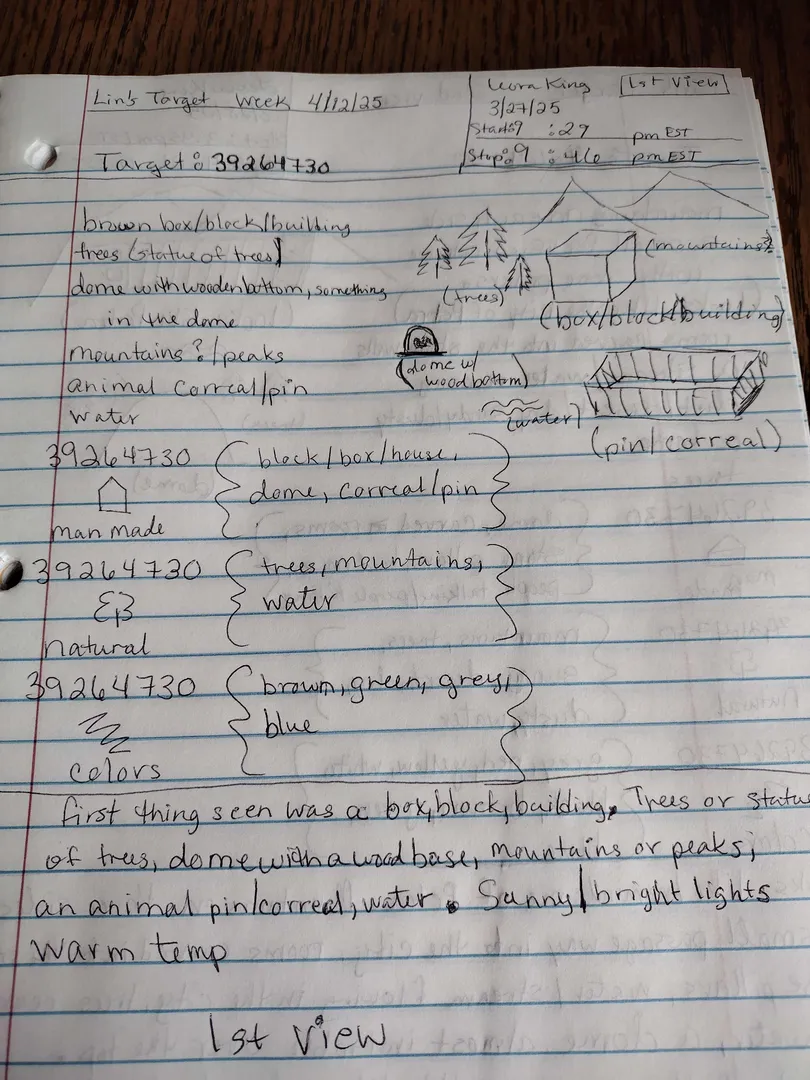 Lin's Target Week 4/12/25
Leora King [1st View]
3/27/25
Start: 9 :29 pm EST
Stop: 9 :46 pm EST
Target: 39264730
brown box/block/building
trees (statue of trees)
dome with wooden bottom, something
in the dome
mountains?/peaks
animal correal/pin
water
(trees)
(mountains?)
(box/block/building)
(dome w/
wood bottom)
(water)
(pin/correal)
39264730 block/box/house,
dome, correal/pin
man made
39264730 trees, mountains,
water
natural
39264730 brown, green, grey,
blue
colors
first thing seen was a box, block, building. Trees or statue
of trees, dome with a wood base, mountains or peaks,
an animal pin/correal, water. Sunny/bright lights
warm temp
1st View